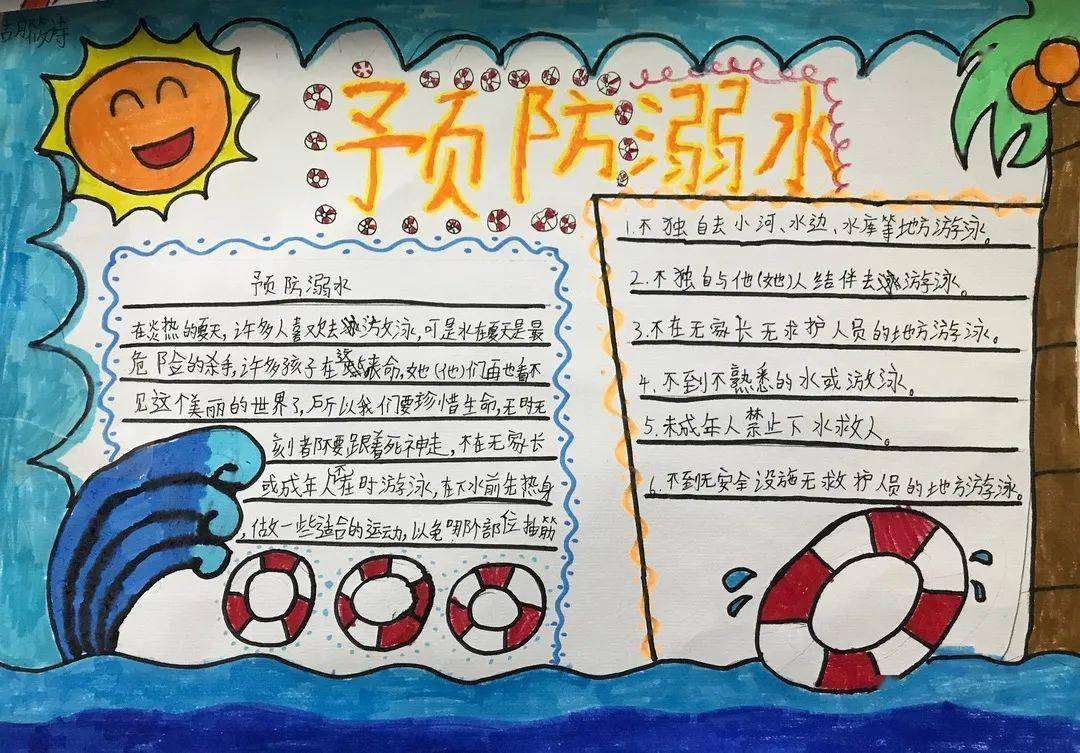 予页防溺水
预防溺水
在炎热的夏天,许多人喜欢去游泳,可是水在夏天是最
危险的杀手,许多孩子在这失去命,她(他)们再也看不
见这个美丽的世界了,所以我们要珍惜生命,无时无
刻者都要跟着死神走,不在无家长
或成年人不在时游泳,在下水前先热身
,做一些适合的运动,以免哪个部位抽筋
1.不独自去小河、水边、水库等地方游泳。
2.不独自与他(她)人结伴去游泳。
3.不在无家长无求护人员的地方游泳。
4.不到不熟悉的水或游泳。
5.未成年人禁止下水救人。
6.不到无安全设施无救护人员的地方游泳。